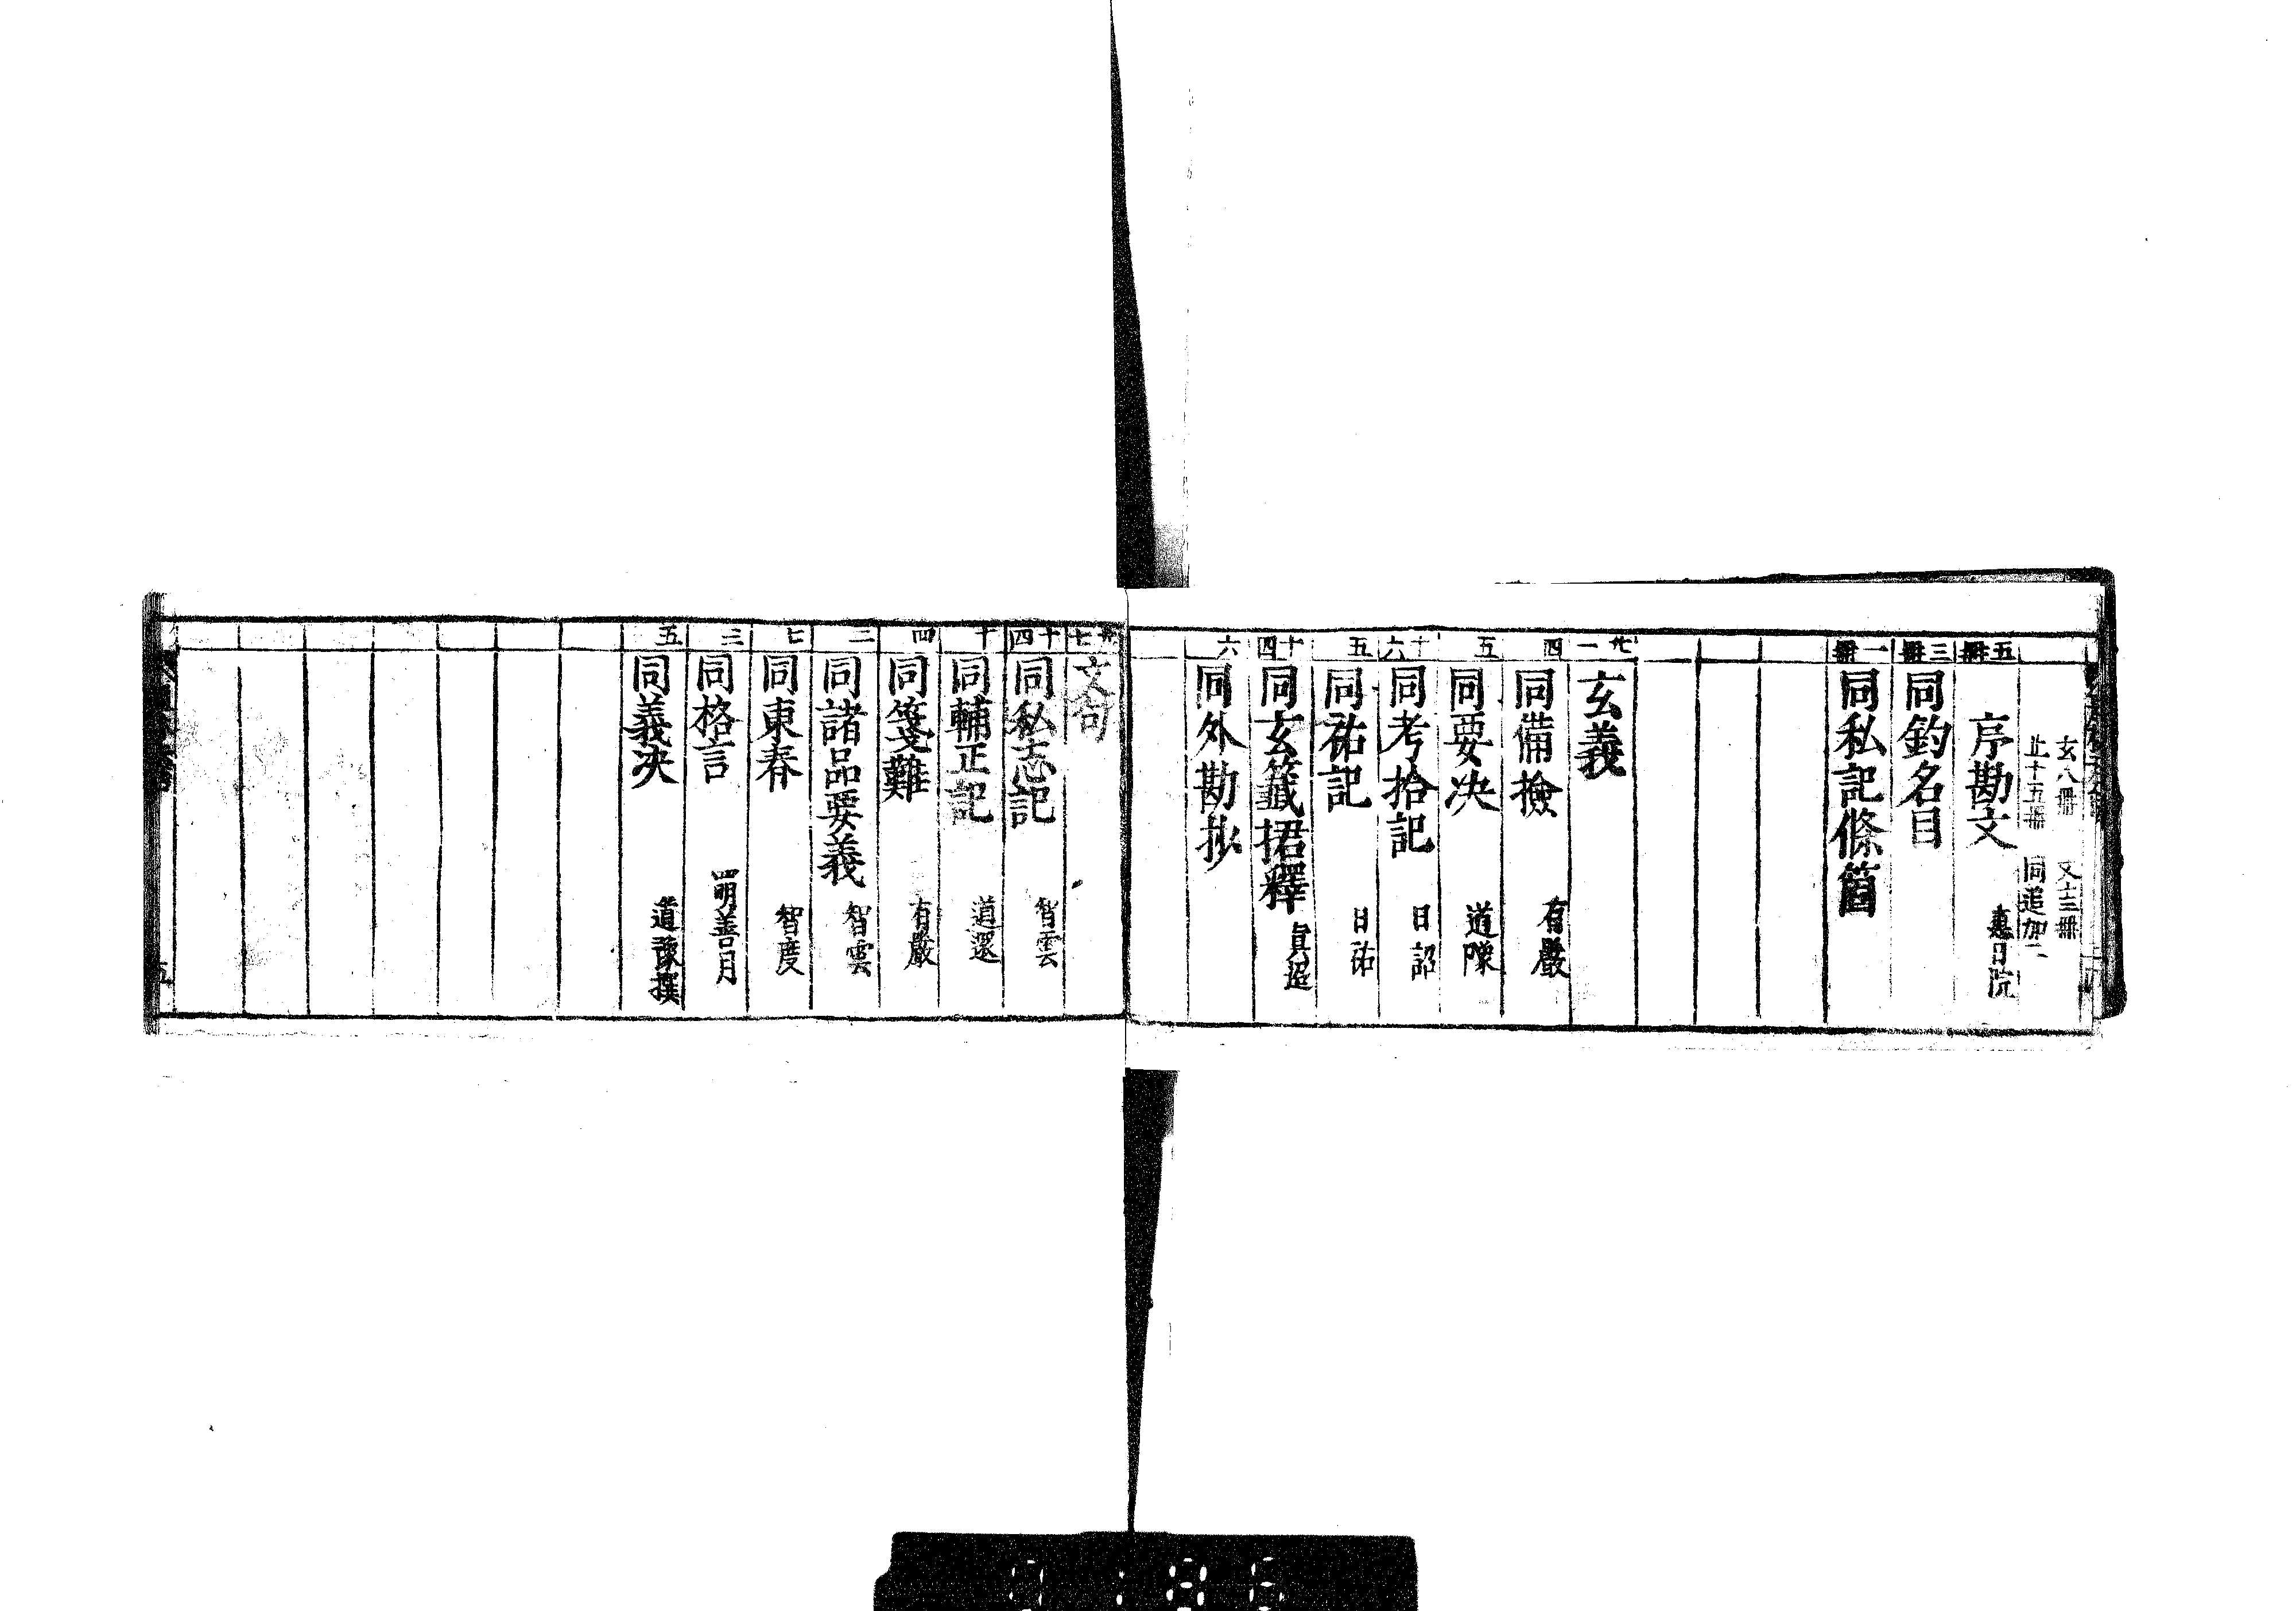 玄八冊 又十三冊
止十五冊 同追加一
五冊 序勘文 惠日院
三冊 同釣名目
一冊 同私記條箇
玄義
四 同備撿 有嚴
五 同要决 道隊
十六 同考拾記 日詔
五 同祐記 日祐
十四 同玄籤捃釋 眞超
六 同外勘抄
七 文句
十四 同私志記 智雲
十 同輔正記 道暹
四 同箋難 有嚴
二 同諸品要義 智雲
七 同東春 智度
三 同格言 四明善月
五 同義决 道𨼆撰
五